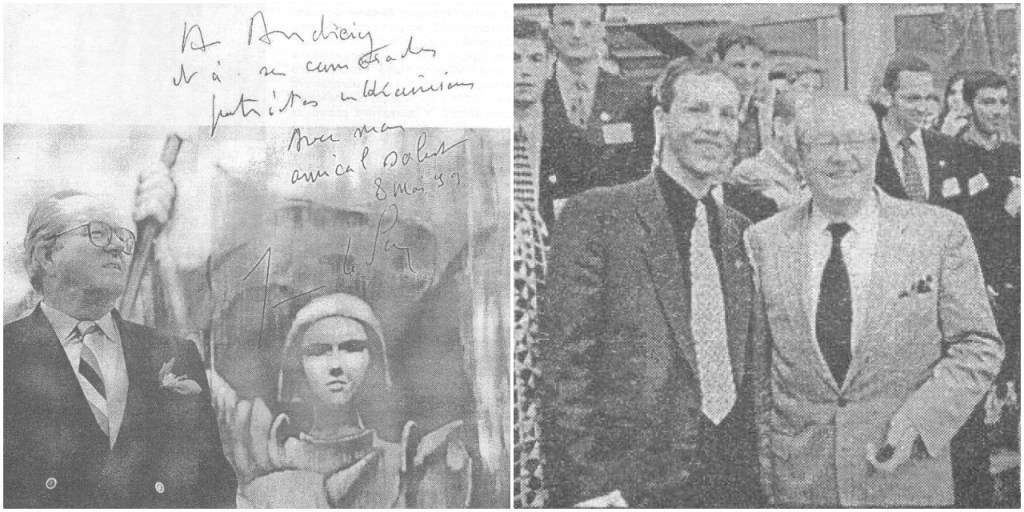 A
et à ses camarades
patriotes ukrainiens
Avec mon
amical salut
8 Mai 99
le Pen